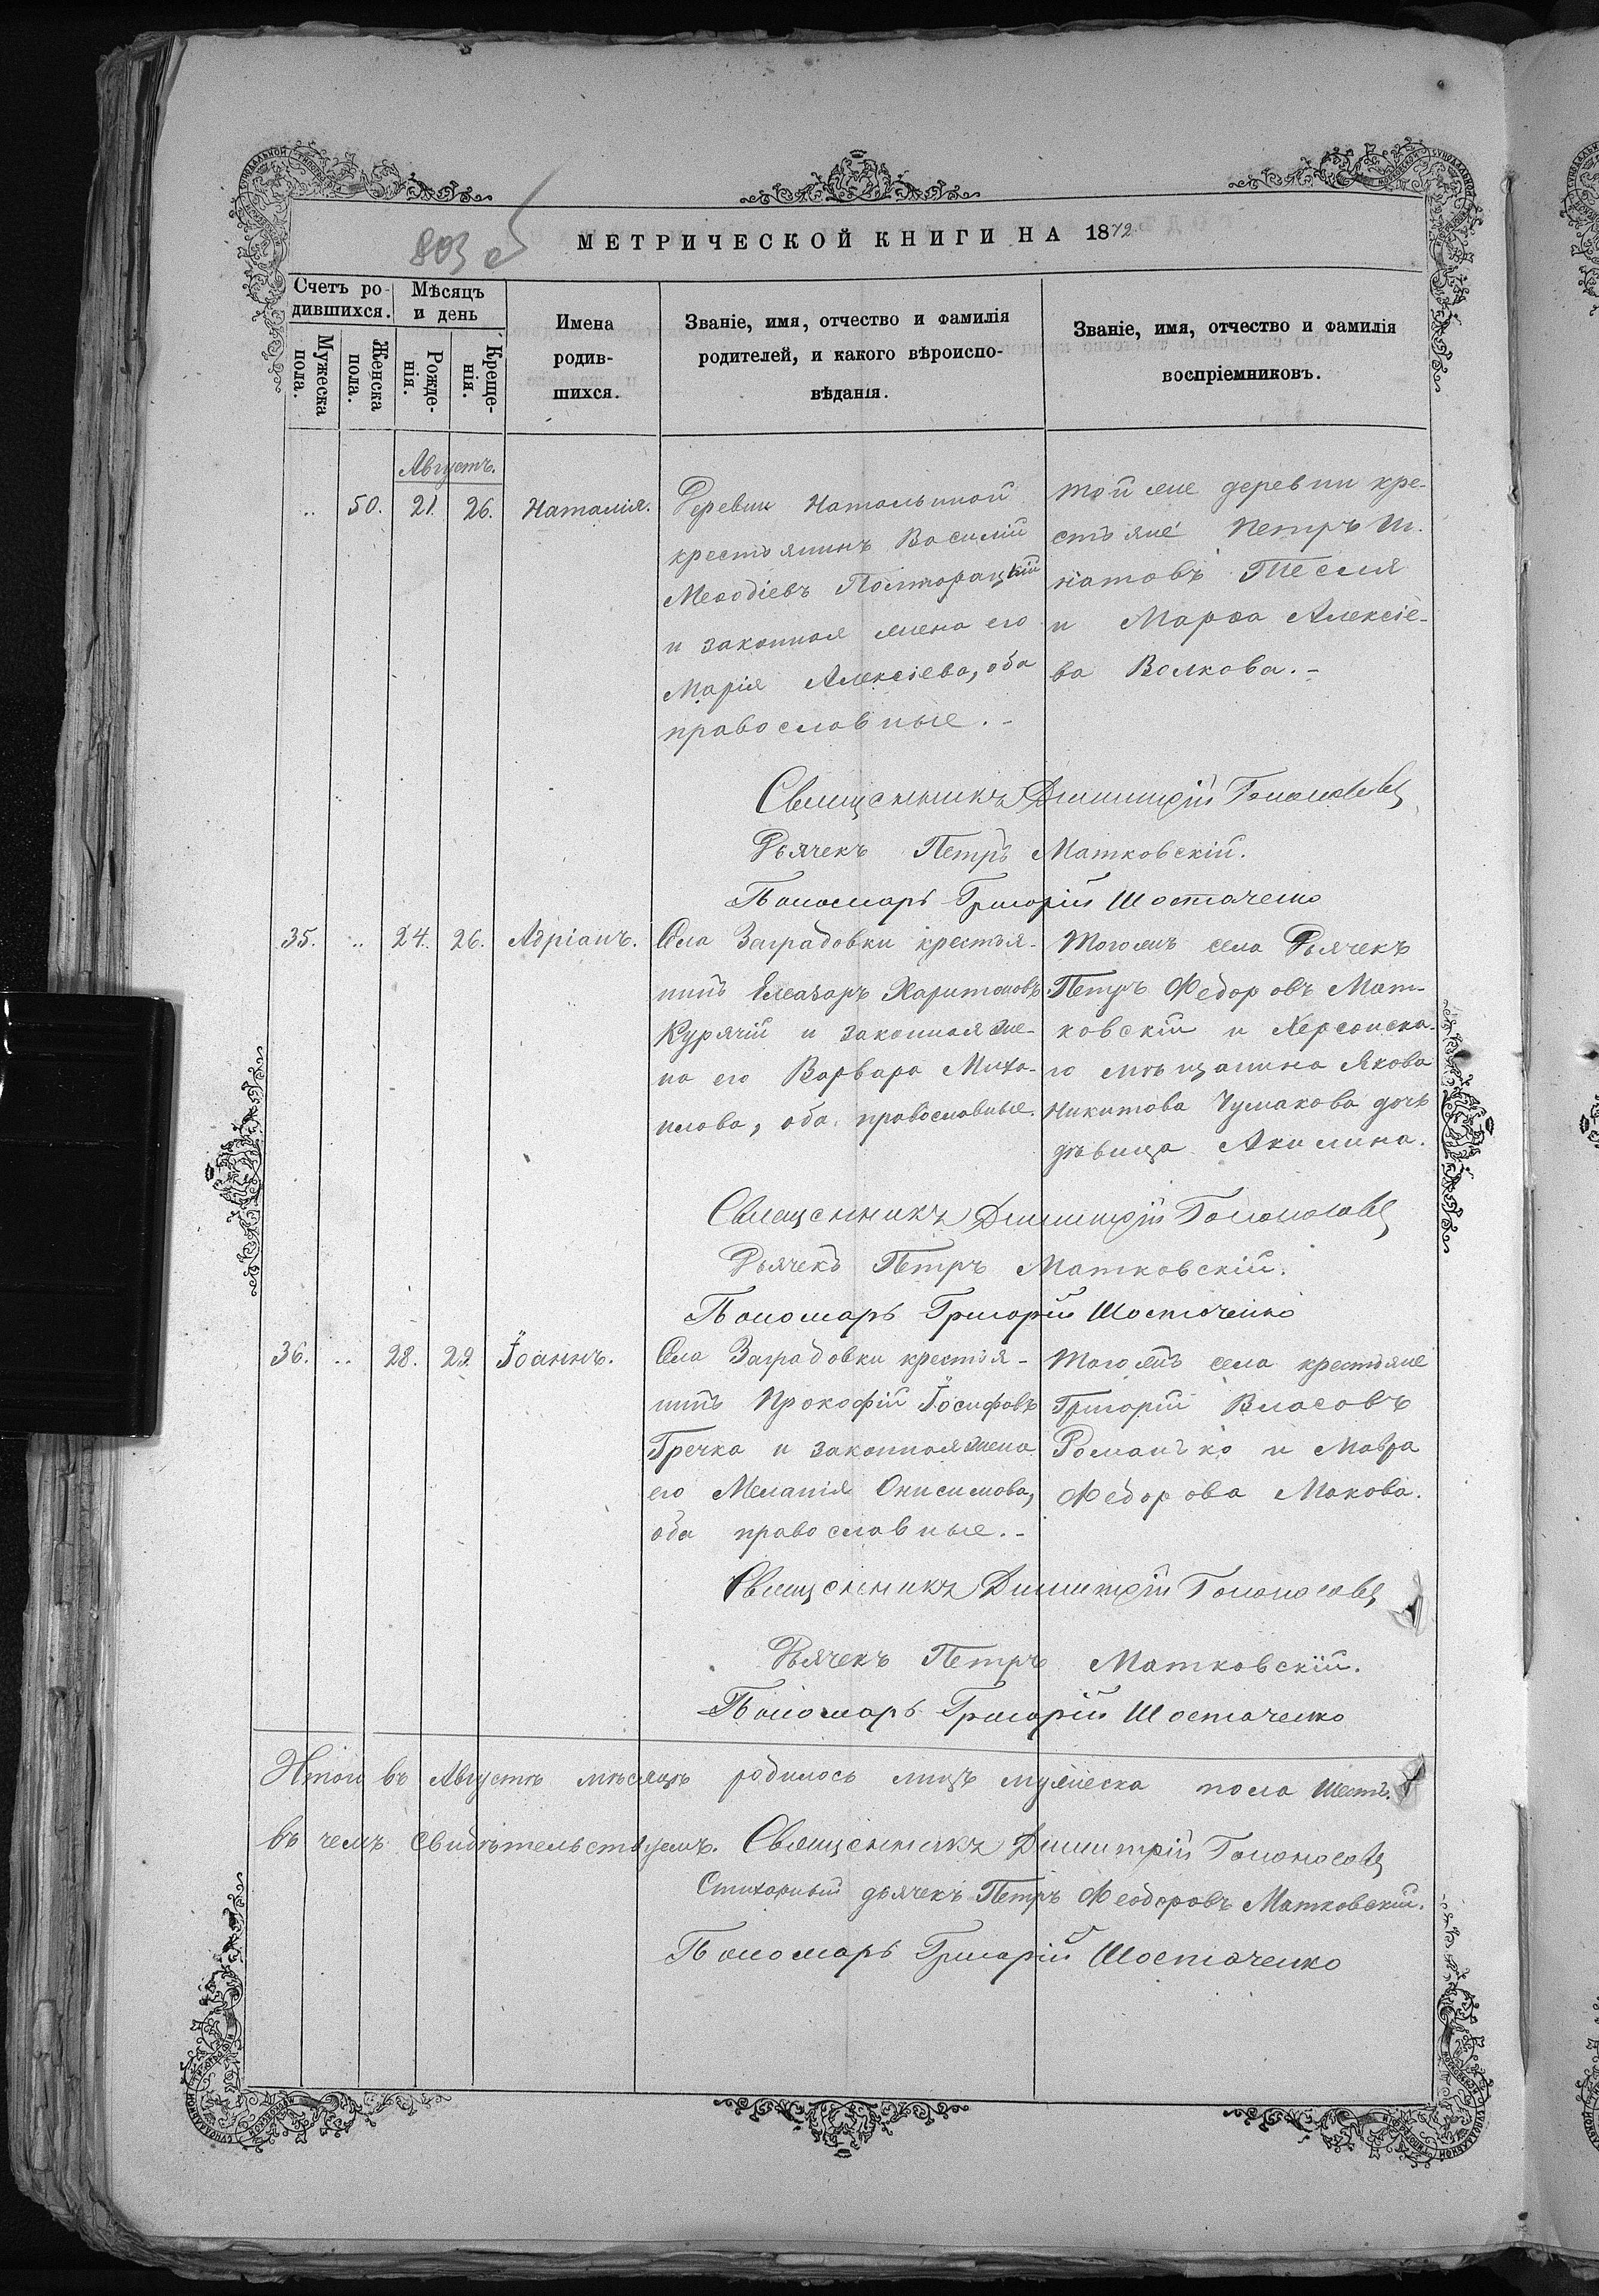 803 об
МЕТРИЧЕСКОЙ КНИГИ НА 1872
Счетъ ро-
дившихся.
Мѣсяцъ
и день
Мужеска
пола.
Женска
пола.
Рожде-
нія.
Креще-
нія.
Имена
родив-
шихся.
Званіе, имя, отчество и фамилія
родителей, и какого вѣроиспо-
вѣданія.
Званіе, имя, отчество и фамилія
воспріемниковъ.
Августъ.
.. 50. 21. 26. Наталія.
Деревни Натальиной
крестьянинъ Василій
Меѳодіевъ Полторацкій
и законная жена его
Марія Алексіева, оба
православные.-
Той же деревни кре-
стьяне Петръ Иг-
натовъ Тесля
и Марѳа Алексіе-
ва Волкова.-
Священникъ Димитрій
Дьячекъ Петръ Матковскій.
Пономарь Григорій Шостаченко
35. .. 24. 26. Адріанъ.
Села Заградовки крестья-
нинъ Елеазаръ Харитоновъ
Курячій и законная же-
на его Варвара Миха-
илова, оба православные.
Тогожъ села Дьячекъ
Петръ Федоровъ Мат-
ковскій и Херсонска-
го мѣщанина Якова
Никитова Чумакова дочь
дѣвица Акилина.
Священникъ Димитрій
Дьячекъ Петръ Матковскій.
Пономарь Григорій Шостаченко
36. .. 28. 29. Іоаннъ.
Села Заградовки крестья-
нинъ Прокофій Іосифовъ
Гречка и законная жена
его Меланія Онисимова,
оба православные.-
Тогожъ села крестьяне
Григорій Власовъ
Романько и Мавра
Федорова Макова.
Священникъ Димитрій
Дьячекъ Петръ Матковскій.
Пономарь Григорій Шостаченко
Итого въ Августѣ мѣсяцѣ родилось лицъ мужеска пола шесть.
въ чемъ свидѣтельствуемъ. Священникъ Димитрій
Стихарный дьячекъ Петръ Феодоровъ Матковскій.
Пономарь Григорій Шостаченко